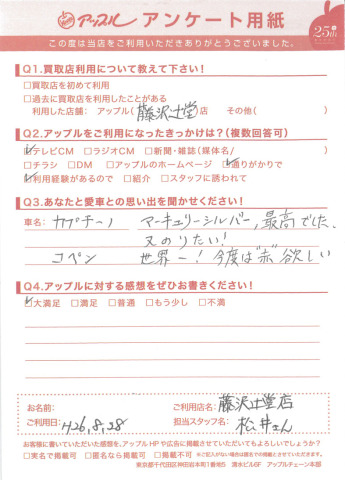 アップル アンケート用紙
25th
この度は当店をご利用いただきありがとうございました。
Q1.買取店利用について教えて下さい！
□買取店を初めて利用
□過去に買取店を利用したことがある
利用した店舗： アップル（ 藤沢辻堂 ）店 その他（ ）
Q2.アップルをご利用になったきっかけは？（複数回答可）
☑テレビCM □ラジオCM □新聞・雑誌（媒体名/ ）
□チラシ □DM □アップルのホームページ ☑通りがかりで
☑利用経験があるので □紹介 □スタッフに誘われて
Q3.あなたと愛車との思い出を聞かせください！
車名： カプチーノ マーキュリーシルバー，最高でした、
又のりたい！
コペン 世界一！今度は"赤"欲しい
Q4.アップルに対する感想をぜひお書きください！
☑大満足 □満足 □普通 □もう少し □不満
お名前： ご利用店名：藤沢辻堂店
ご利用日： H26,8,28 担当スタッフ名：松井さん
お客様に書いていただいた感想を、アップルHPや広告に掲載させていただいてもよろしいでしょうか？
□実名で掲載可 □匿名なら掲載可 □掲載不可 ※ご記入がない場合は匿名での掲載とさせていただきます。
東京都千代田区神田岩本町1番地5 清水ビル6F アップルチェーン本部